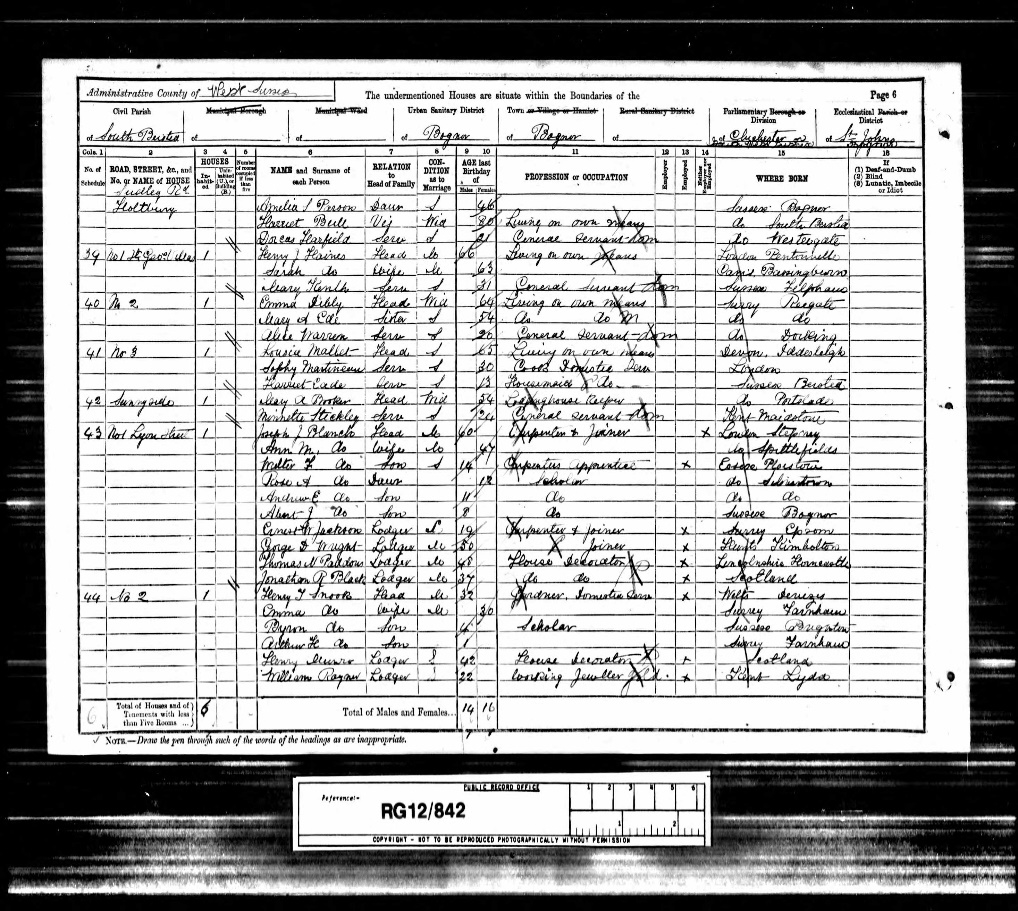 Administrative County of West Sussex
The undermentioned Houses are situate within the Boundaries of the
Page 6
Civil Parish Municipal Borough Municipal Ward Urban Sanitary District Town or Village or Hamlet Rural Sanitary District Parliamentary Borough or Division Ecclesiastical Parish or District
of South Bersted of of of Bognor of Bognor of of Chichester or of St Johns
Cols. 1 2 3 4 5 6 7 8 9 10 11 12 13 14 15 16
No. of Schedule ROAD, STREET, &c., and No. or NAME of HOUSE HOUSES Inhabited Uninhabited (U.), or Building (B.) Number of rooms occupied if less than five NAME and Surname of each Person RELATION to Head of Family CONDITION as to Marriage AGE last Birthday of Males Females PROFESSION or OCCUPATION Employer Employed Neither Employer nor Employed WHERE BORN If (1) Deaf-and-Dumb (2) Blind (3) Lunatic, Imbecile or Idiot
Sudley Rd
Amelia S Person Daur S 46 Sussex Bognor
Harriet Bull Vis Wid 80 Living on own means do South Bersted
Dorcas Harfield Serv S 21 General Servant dom do Westergate
39 No 1 1 Henry J Haines Head M 66 Living on own means London Pentonville
Sarah do Wife M 63 Cams Bassingbourn
Mary Kenth Serv S 31 General Servant dom Sussex Felpham
40 No 2 1 Emma Head Wid 64 Living on own means Surry Reigate
Mary A Ede Sister S 54 do do do do
Alice Warren Serv S 26 General Servant dom do Docking
41 No 3 1 Louisa Mallet Head S 65 Living on own means Devon, Iddesleigh
Sophy Martineau Serv S 30 Cook Domestic Serv London
Harriet Eade Serv S 13 Housemaid do Sussex Bersted
42 Sunnyside 1 May A Booker Head Wid 54 Lodginghouse Keeper do Portslade
Minnette Stickley Serv S 24 General Servant dom Kent Maidstone
43 No 1 Lyon Street 1 Joseph J Blanch Head M 60 Carpenter & Joiner x London Stepney
Ann M. do Wife M 47 do Spittlefields
Walter F do Son S 14 Carpenters Apprentice x Essex Plaistow
Rose A do Daur 12 Scholar do Silvertown
Andrew E do Son 11 do do do
Albert J do Son 8 do Sussex Bognor
Ernest W Jackson Lodger S 19 Carpenter & Joiner x Surrey Epsom
George D Wright Lodger M 50 Joiner x Hunts Kimbolton
Thomas N Paddon Lodger M 48 House Decorator x Lincolnshire Horncastle
Jonathan R Black Lodger M 37 do do x Scotland
44 No 2 1 Henry T Snook Head M 32 Gardner, Domestic Serv x Wilts Devizes
Emma do Wife M 30 Surrey Farnham
Byron do Son 4 Scholar Sussex Brighton
Arthur H do Son 1 Surrey Farnham
Henry Munro Lodger S 42 House Decorator x Scotland
William Rayner Lodger 22 Working Jeweller Gold. x Kent Lydd
6 Total of Houses and of Tenements with less than Five Rooms ... 6 Total of Males and Females... 14 16
NOTE.—Draw the pen through such of the words of the headings as are inappropriate.
PUBLIC RECORD OFFICE
Reference:-
RG12/842
1 2 3 4 5 6
1 2
COPYRIGHT - NOT TO BE REPRODUCED PHOTOGRAPHICALLY WITHOUT PERMISSION